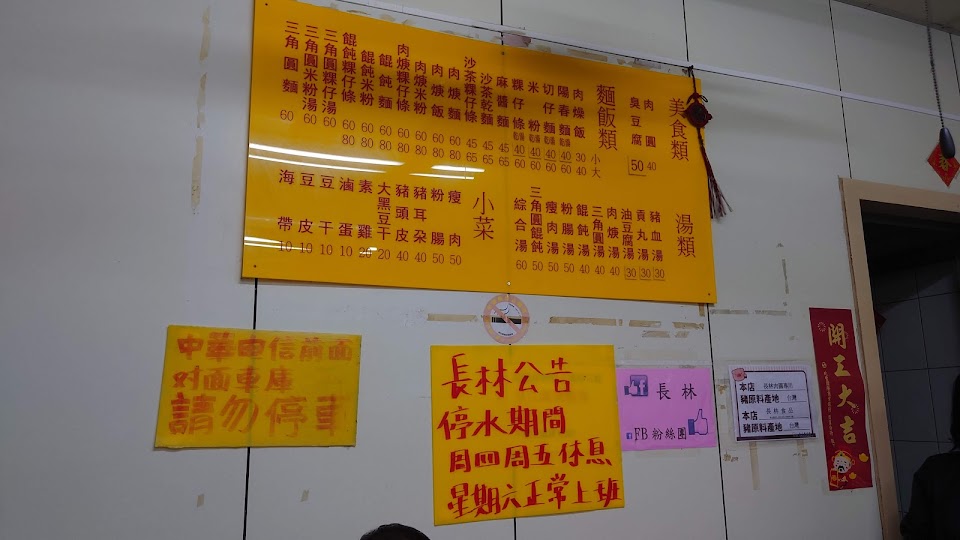 美食類
肉圓 40
臭豆腐 50
麵飯類 小 大
肉燥飯 30 40
陽春麵 40 60
切仔麵 40 60
米粉 40 60
粿仔條 40 60
麻醬麵 45 65
沙茶乾麵 45 65
沙茶粿仔條 45 65
肉焿麵 60 80
肉焿飯 60 80
肉焿米粉 60 80
肉焿粿仔條 60 80
餛飩麵 60 80
餛飩米粉 60 80
餛飩粿仔條 60 80
三角圓粿仔湯 60
三角圓米粉湯 60
三角圓麵 60
湯類
豬血湯 30
貢丸湯 30
油豆腐湯 30
肉焿湯 40
三角圓湯 40
餛飩湯 40
粉腸湯 50
瘦肉湯 50
三角圓餛飩 50
綜合湯 60
小菜
瘦肉 50
粉腸 50
豬耳朵 40
豬頭皮 40
大黑豆干 20
素雞 20
滷蛋 10
豆干 10
豆皮 10
海帶 10
中華电信前面
对面車庫
請勿停車
長林公告
停水期間
周四周五休息
星期六正常上班
長林
FB粉絲團
本店 長林肉圓專店
豬原料產地 台灣
本店 長林食品
豬原料產地 台灣
開工大吉
春